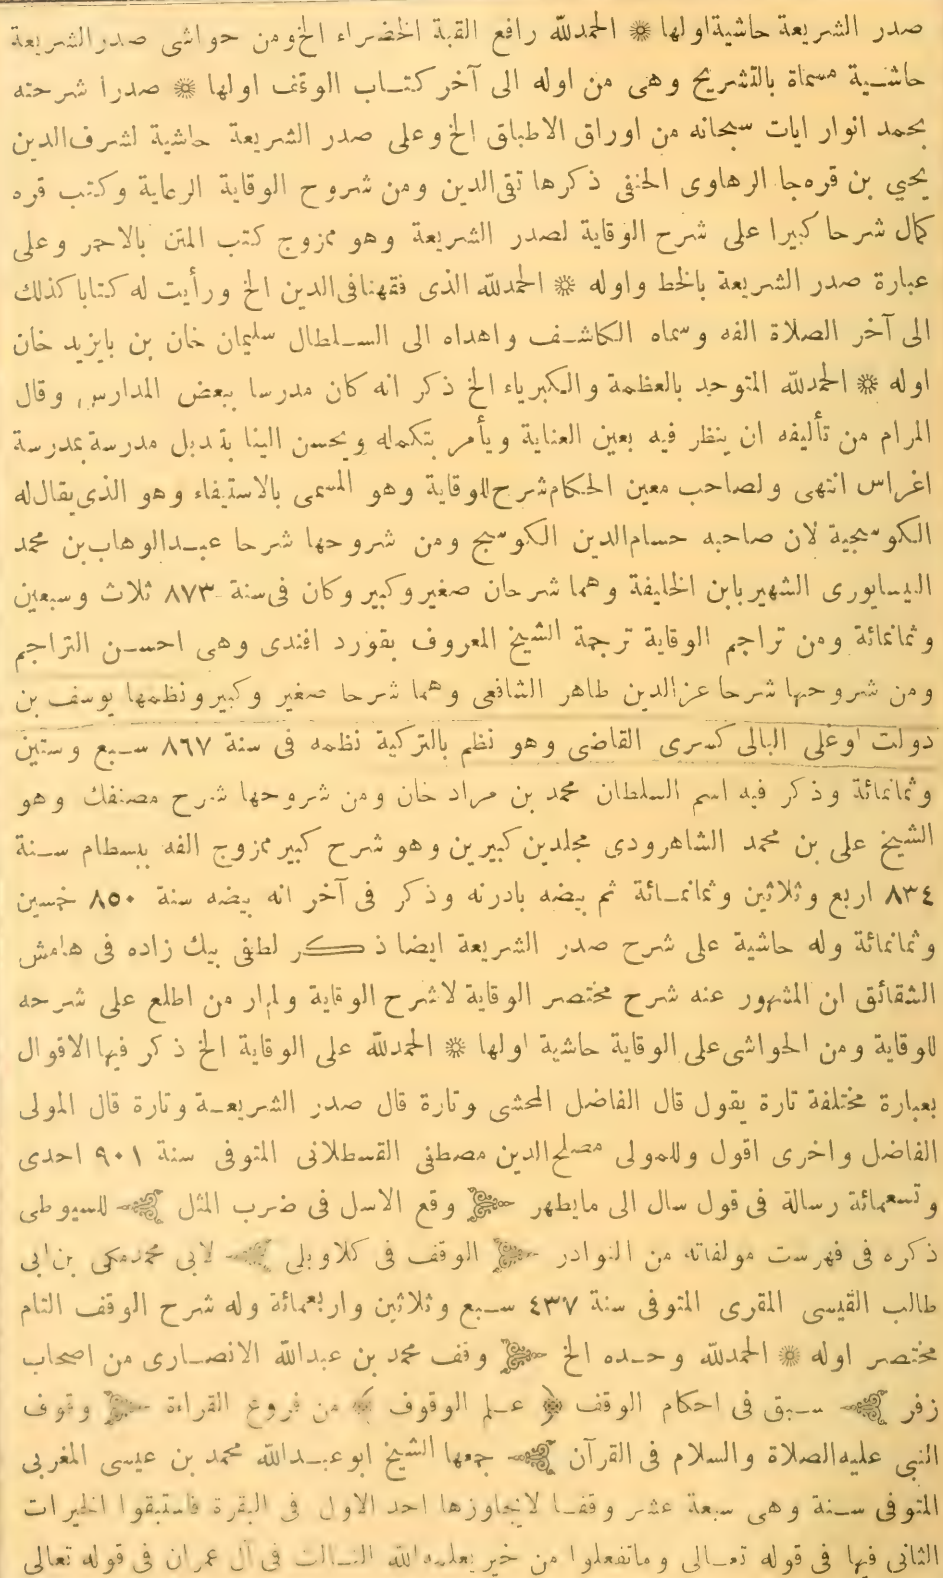 صدر الشريعة حاشية اولها ❊ الحمدلله رافع القبة الخضراء الخ ومن حواشى صدر الشريعة
حاشية مسماة بالتشريح وهى من اوله الى آخر كتاب الوقف اولها ❊ صدرا شرحته
بحمد انوار ايات سبحانه من اوراق الاطباق الخ وعلى صدر الشريعة حاشية لشرف الدين
يحيى بن قره جا الرهاوى الحنفى ذكرها تقى الدين ومن شروح الوقاية الرعاية وكتب قره
كمال شرحا كبيرا على شرح الوقاية لصدر الشريعة وهو ممزوج كتب المتن بالاحمر وعلى
عبارة صدر الشريعة بالخط واوله ❊ الحمدلله الذى فقهنا فى الدين الخ ورأيت له كتابا كذلك
الى آخر الصلاة الفه وسماه الكاشف واهداه الى السلطال سليمان خان بن بايزيد خان
اوله ❊ الحمدلله المتوحد بالعظمة والكبرياء الخ ذكر انه كان مدرسا ببعض المدارس وقال
المرام من تأليفه ان ينظر فيه بعين العناية ويأمر بتكمله ويحسن الينا بتدبل مدرسة بمدرسة
اغراس انتهى ولصاحب معين الحكام شرح للوقاية وهو المسمى بالاستيفاء وهو الذى يقال له
الكوسجية لان صاحبه حسام الدين الكوسج ومن شروحها شرحا عبدالوهاب بن محمد
اليسابورى الشهير بابن الخليفة وهما شرحان صغير وكبير وكان فى سنة ٨٧٣ ثلاث وسبعين
وثمانمائة ومن تراجم الوقاية ترجمة الشيخ المعروف بقورد افندى وهى احسن التراجم
ومن شروحها شرحا عز الدين طاهر الشافعى وهما شرحا صغير وكبير ونظمها يوسف بن
دولت اوغلى البالى كسرى القاضى وهو نظم بالتركية نظمه فى سنة ٨٦٧ سبع وستين
وثمانمائة وذكر فيه اسم السلطان محمد بن مراد خان ومن شروحها شرح مصنفك وهو
الشيخ على بن محمد الشاهرودى مجلدين كبيرين وهو شرح كبير ممزوج الفه ببسطام سنة
٨٣٤ اربع وثلاثين وثمانمائة ثم بيضه بادرنه وذكر فى آخر انه بيضه سنة ٨٥٠ خمسين
وثمانمائة وله حاشية على شرح صدر الشريعة ايضا ذكر لطفى بيك زاده فى هامش
الشقائق ان المشهور عنه شرح مختصر الوقاية لا شرح الوقاية ولم ار من اطلع على شرحه
للوقاية ومن الحواشى على الوقاية حاشية اولها ❊ الحمدلله على الوقاية الخ ذكر فيها الاقوال
بعبارة مختلفة تارة يقول قال الفاضل المحشى وتارة قال صدر الشريعة وتارة قال المولى
الفاضل واخرى اقول وللمولى مصلح الدين مصطفى القسطلانى المتوفى سنة ٩٠١ احدى
وتسعمائة رسالة فى قول سال الى مايطهر وقع الاسل فى ضرب المثل للسيوطى
ذكره فى فهرست مولفاته من النوادر الوقف فى كلا وبلى لابى محمد مكى بن ابى
طالب القيسى المقرى المتوفى سنة ٤٣٧ سبع وثلاثين واربعمائة وله شرح الوقف التام
مختصر اوله ❊ الحمدلله وحده الخ وقف محمد بن عبدالله الانصارى من اصحاب
زفر سبق فى احكام الوقف علم الوقوف من فروع القراءة وقوف
النبى عليه الصلاة والسلام فى القرآن جمعها الشيخ ابو عبدالله محمد بن عيسى المغربى
المتوفى سنة وهى سبعة عشر وقفا لايجاوزها احد الاول فى البقرة فاستبقوا الخيرات
الثانى فيها فى قوله تعالى وماتفعلوا من خير يعلمه الله الثالث فى آل عمران فى قوله تعالى